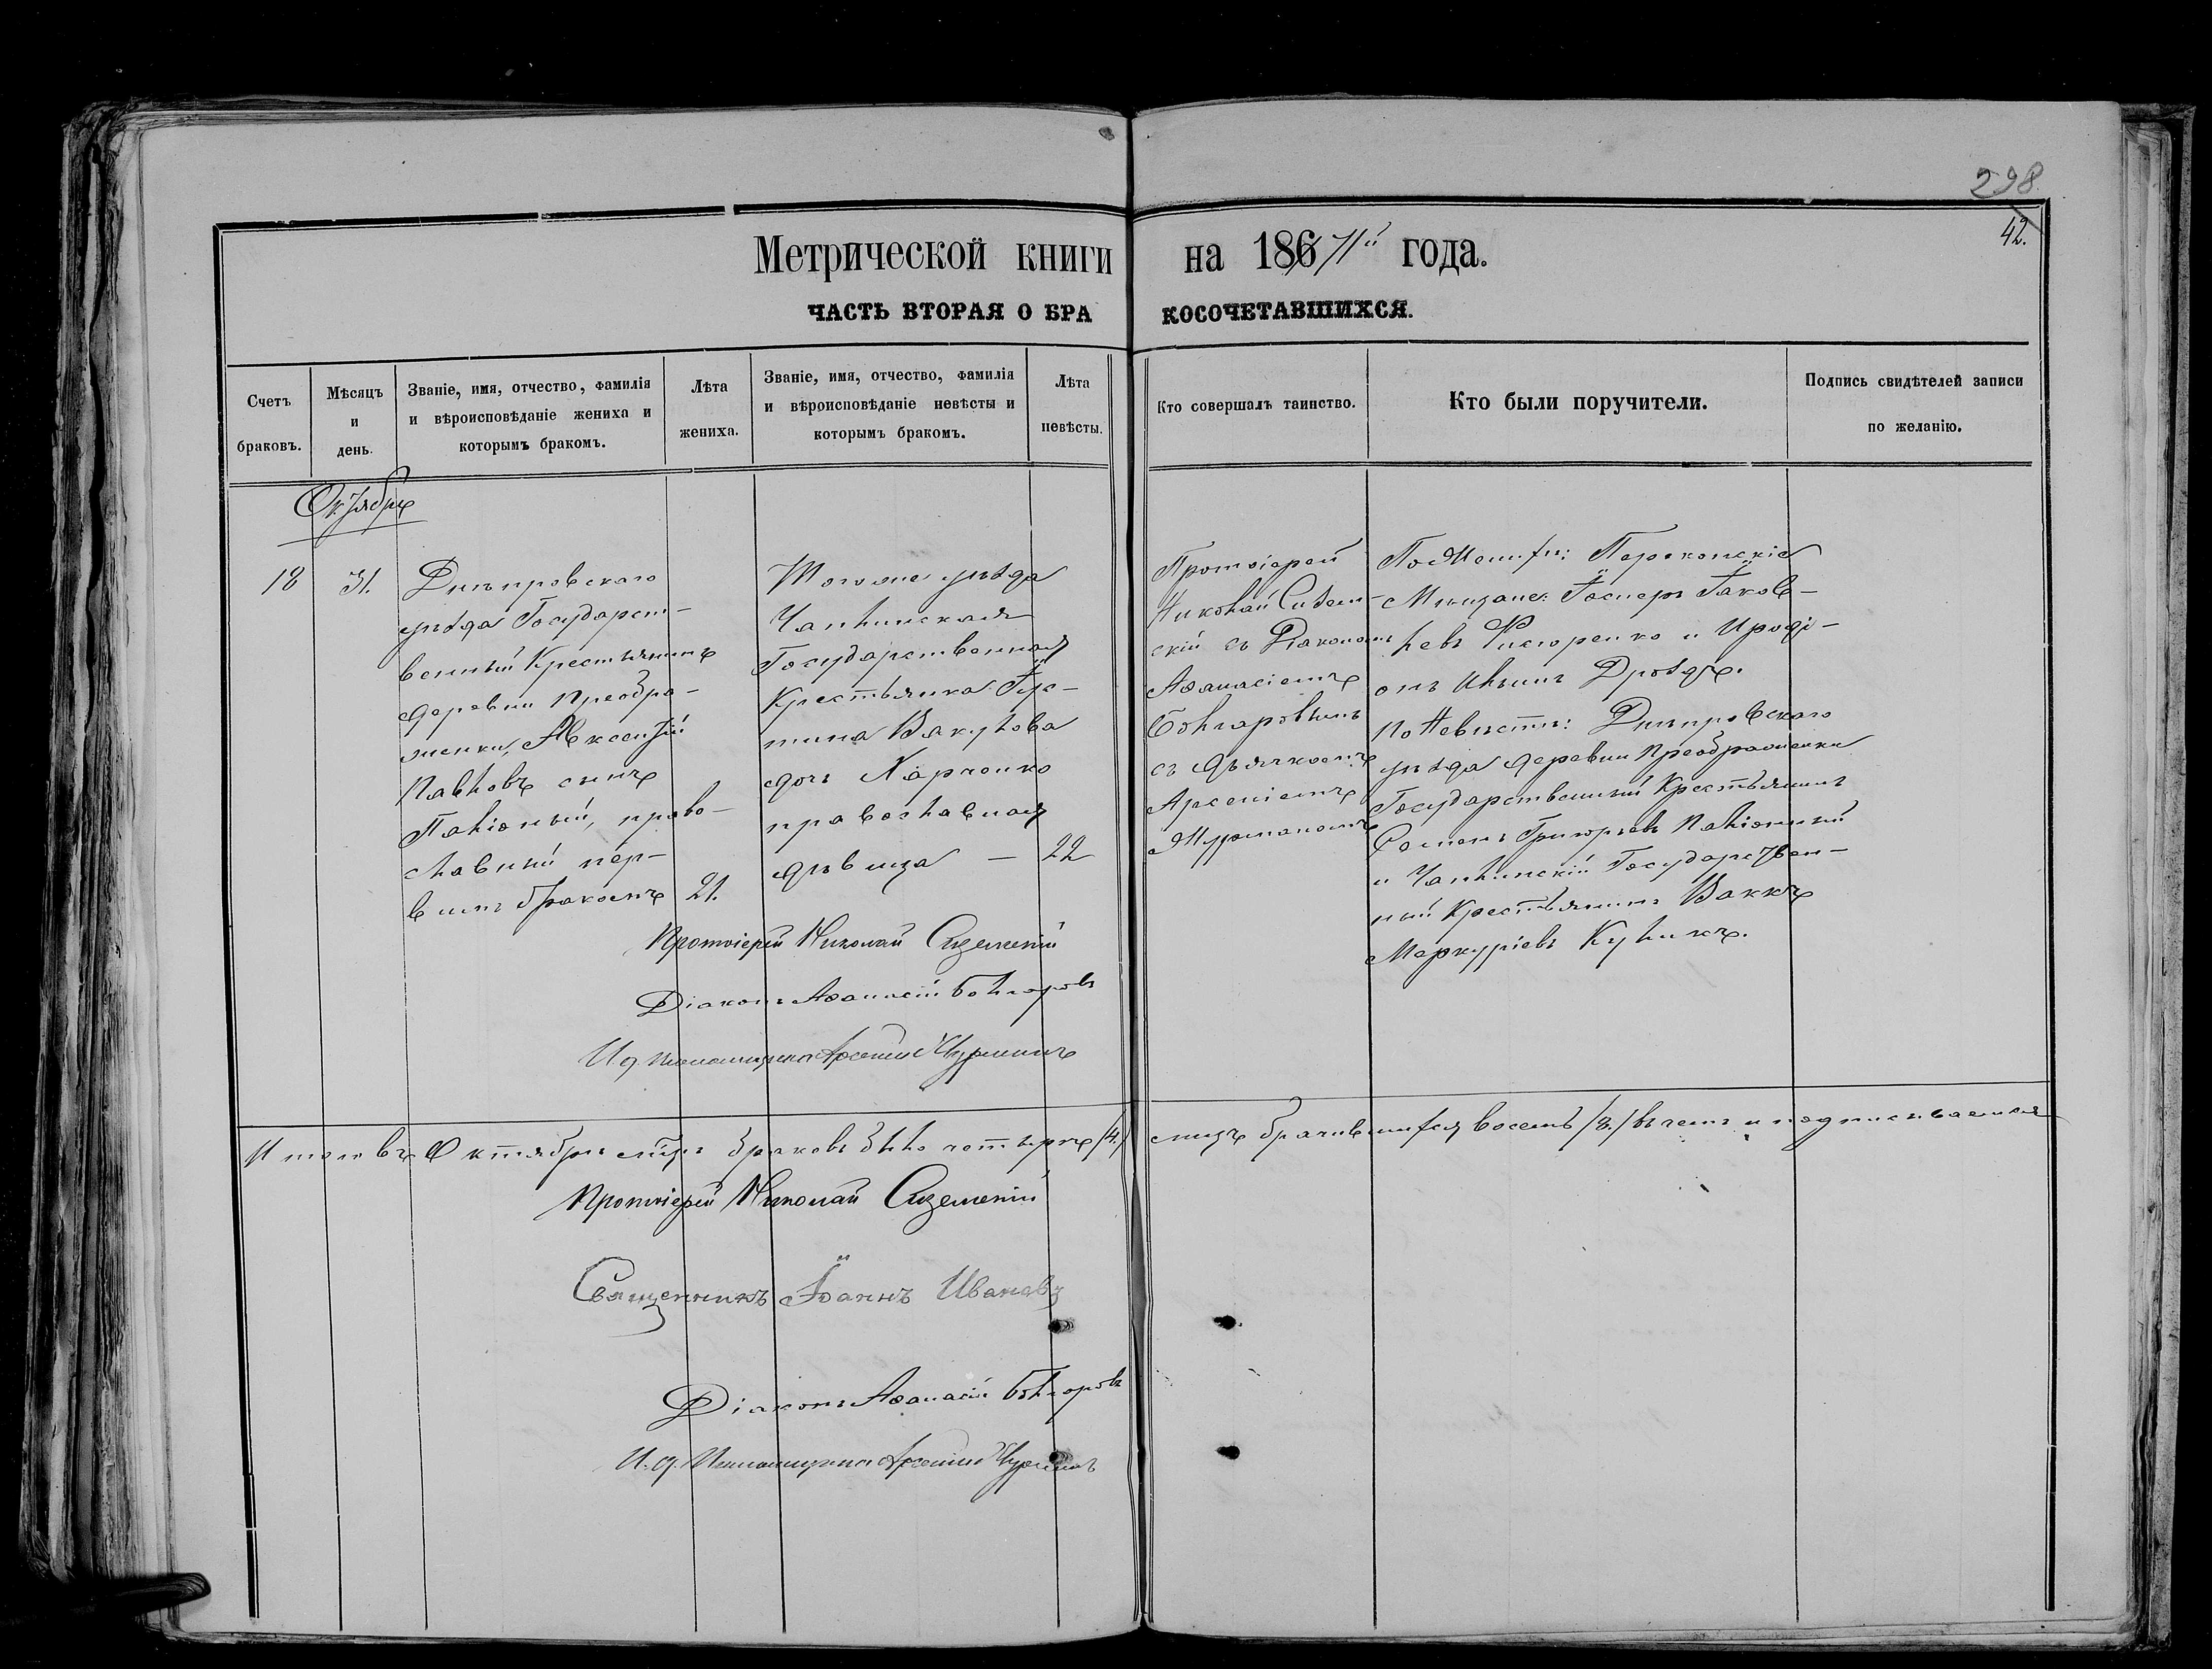 298
42.
Метрической книги на 1871й года.
ЧАСТЬ ВТОРАЯ О БРАКОСОЧЕТАВШИХСЯ.
Счетъ браковъ.
Мѣсяцъ и день.
Званіе, имя, отчество, фамилія и вѣроисповѣданіе жениха и которымъ бракомъ.
Лѣта жениха.
Званіе, имя, отчество, фамилія и вѣроисповѣданіе невѣсты и которымъ бракомъ.
Лѣта невѣсты.
Кто совершалъ таинство.
Кто были поручители.
Подпись свидѣтелей записи по желанію.
Октябрь
18
31.
Днѣпровскаго
уѣзда Государст-
венный Крестьянинъ
деревни Преобра-
женки, Авксентій
Павловъ сынъ
Паліонный, право-
славный пер-
вымъ бракомъ
21.
Тогоже уѣзда
Чаплинская
Государственная
Крестьянка
Вакулова
дочь Харченко
православная
дѣвица —
22
Протоіерей
Николай Сизем-
скій съ Діакономъ
Аѳанасіемъ
Болгаровымъ
съ дьячкомъ
Арсеніемъ
По Жениху: Перекопскіе
Мѣщане: Іосифъ Іаков-
левъ и Ироді-
онъ Ильинъ Дроздъ.
По Невѣстѣ: Днѣпровскаго
уѣзда деревни Преображенки
Государственный Крестьянинъ
Семенъ Григорьевъ Паліонный
и Чаплинскій Государствен-
ный Крестьянинъ
Меркуріевъ Куликъ.
Протоіерей Николай Сиземскій
Діаконъ Аѳанасій Болгаровъ
И. д. Псаломщика Арсеній
Итого въ Октябрѣ мѣсяцѣ браковъ было четыре /4./ лицъ брачившихся восемь /8./ въ чемъ и подписываемся
Протоіерей Николай Сиземскій
Священникъ Іоаннъ Ивановъ
Діаконъ Аѳанасій Болгаровъ
И. д. Псаломщика Арсеній